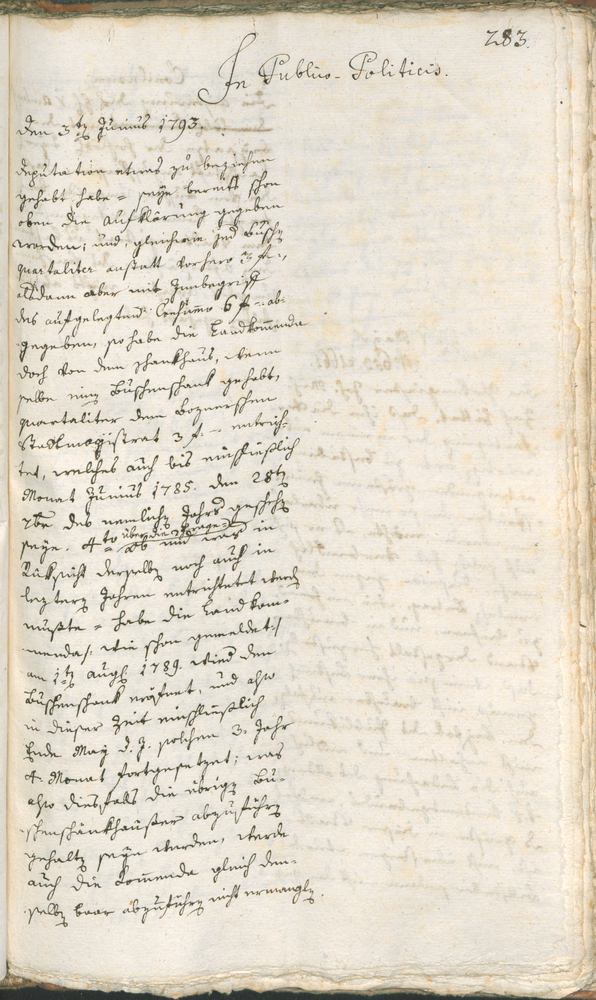 283.
In Publico-Politicis.
den 3ten Junius 1793.
deputation etwas zu beziehen
gehabt habe = seye bereits schon
oben die Aufklärung gegeben
worden; und gleichwie jed Buschen
quartaliter anstatt vorhero 3 f.,
alsdann aber mit Innbegriff
des aufgelegten Consumo 6 f. ab-
gegeben, so habe die Landkomenda
doch von dem schankhaus, wenn
selbe einen Buschenschank gehabt,
quartaliter dem Boznerischen
Stadtmagistrat 3 f. entrich-
tet, welches auch bis einschlüßlich
Monat Junius 1785. den 28ten
7ber des nemlichen Jahrs geschehen
seye. 4to über die Frage =
ob und was in
Rüksicht derselben noch auch in
leztern Jahren entrichtetet werden
mußte = habe die Landkom-
menda /: wie schon gemeldet :/
am 1ten Augl 1789. wied den
Buschenschank eröfnet, und also
in dieser Zeit einschlüßlich
Ende May d. J. solchen 3. Jahr
4. Monat fortgesetzet; was
also diesfalls die übrigen Bu-
schenschänkhäuser abzuführen
gehalten seyn wurden, werde
auch die Komenda gleich den-
selben baar abzuführen nicht ermanglen.